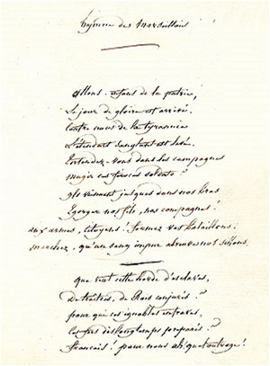 hymne des Marseillois
Allons, enfans de la patrie,
Le jour de gloire est arrivé,
Contre nous de la tyrannie
L'étendart sanglant est levé.
Entendez-vous dans les campagnes
mugir ces féroces soldats ?
ils viennent jusques dans vos bras
Egorger nos fils, nos compagnes !
aux armes, citoyens ! formez vos bataillons :
marchez, qu'un sang impur abreuve nos sillons.
Que veut cette horde d'esclaves,
De traîtres, de Rois conjurés ?
pour qui ces ignobles entraves,
Ces fers dès longtemps préparés ?
français ! pour nous ah, quel outrage !